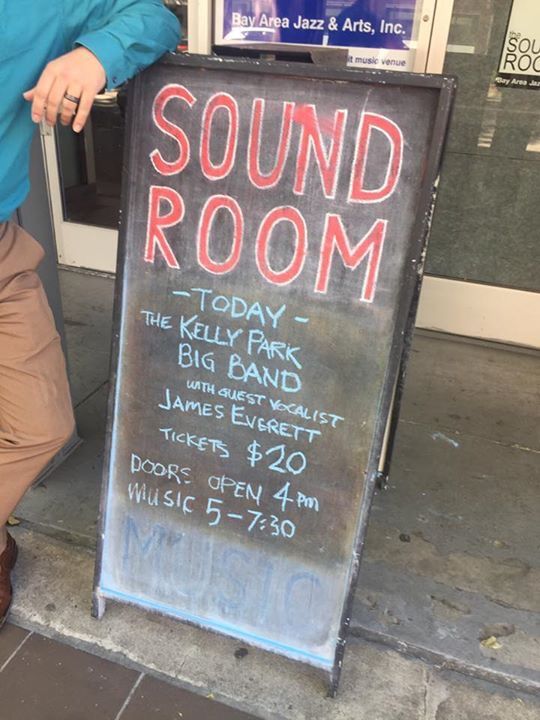 Bay Area Jazz & Arts, Inc.
it music venue
the
SOU
ROO
Bay Area Jaz
SOUND
ROOM
- TODAY -
THE KELLY PARK
BIG BAND
WITH GUEST VOCALIST
JAMES EVERETT
TICKETS $20
DOORS OPEN 4 PM
MUSIC 5-7:30
MUSIC